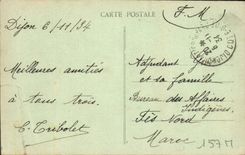 CARTE POSTALE
Dijon 6/11/34
F.M
Meilleures amitiés
à tous trois.
C. Trebolet
Adjudant
et sa famille
Bureau des Affaires
Indigènes
Fès Nord
Maroc
157M